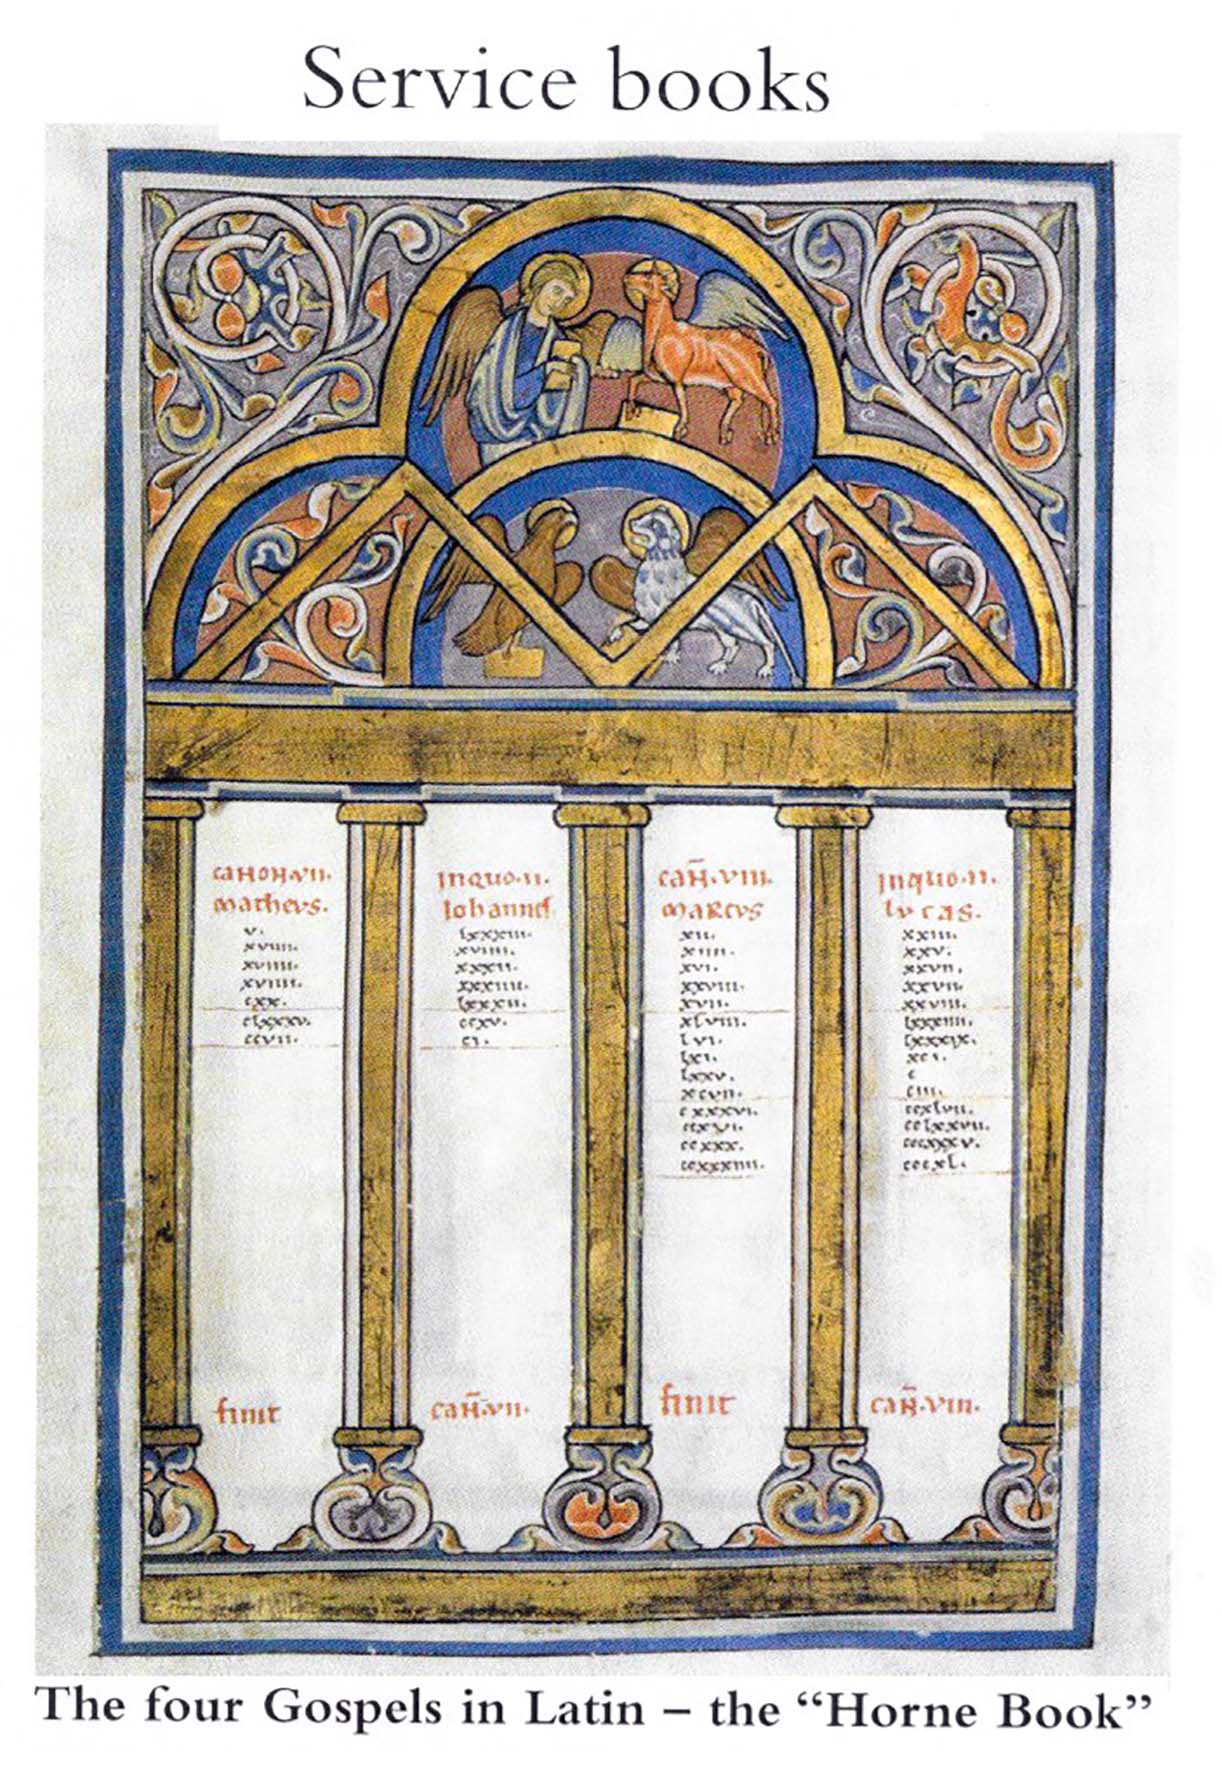 Service books
canon.vii.
matheus.
v.
xviiii.
xviiii.
xviiii.
cxx.
clxxxv.
ccvii.
finit
Inquo.ii.
Iohannes
lxxxiii.
xviiii.
xxxii.
xxxiiii.
lxxxii.
ccxv.
ci.
can̄.vii.
can̄.viii.
marcus
xii.
xiiii.
xvi.
xxviii.
xvii.
xlviii.
lvi.
lxi.
lxxv.
xcvii.
cxxxvi.
ccxvi.
ccxxx.
ccxxxiiii.
finit
Inquo.ii.
lucas.
xxiii.
xxv.
xxvii.
xxvii.
xxviii.
lxxxiiii.
lxxxix.
xci.
c
ciii.
ccxlvii.
cclxxvii.
cccxxxv.
cccxl.
can̄.viii.
The four Gospels in Latin – the “Horne Book”